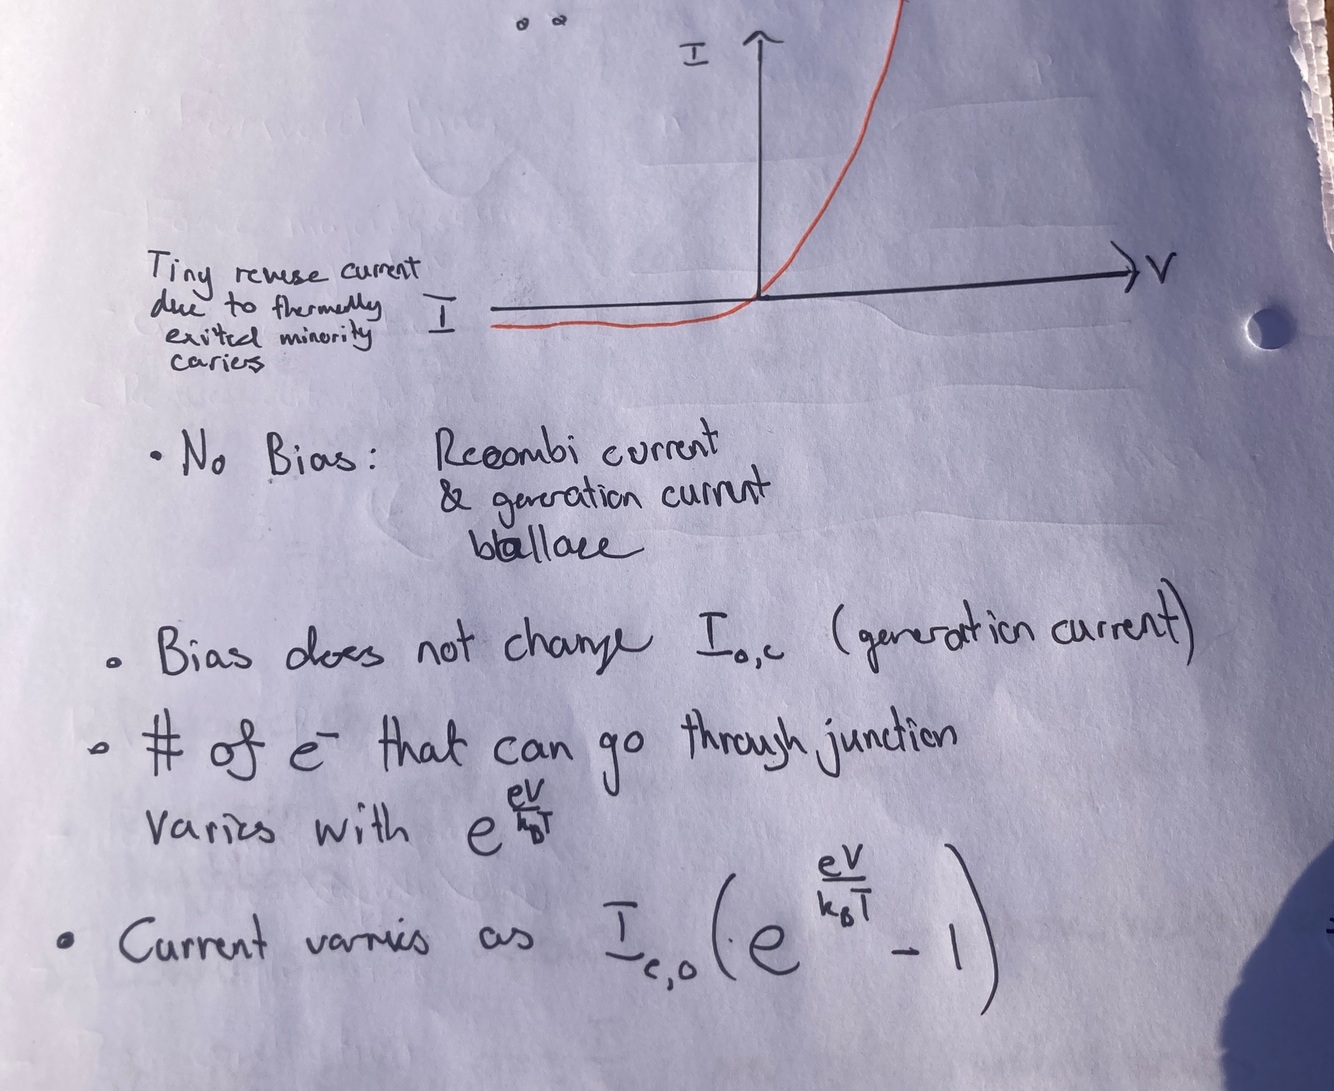 I
V
Tiny reverse current
due to thermally
exited minority
caries
I
• No Bias: Recombi current
& generation current
ballace
• Bias does not change I₀,c (generation current)
• # of e⁻ that can go through junction
varies with e^(eV/k_BT)
• Current varies as I_e,0 (e^(eV/k_BT) - 1)